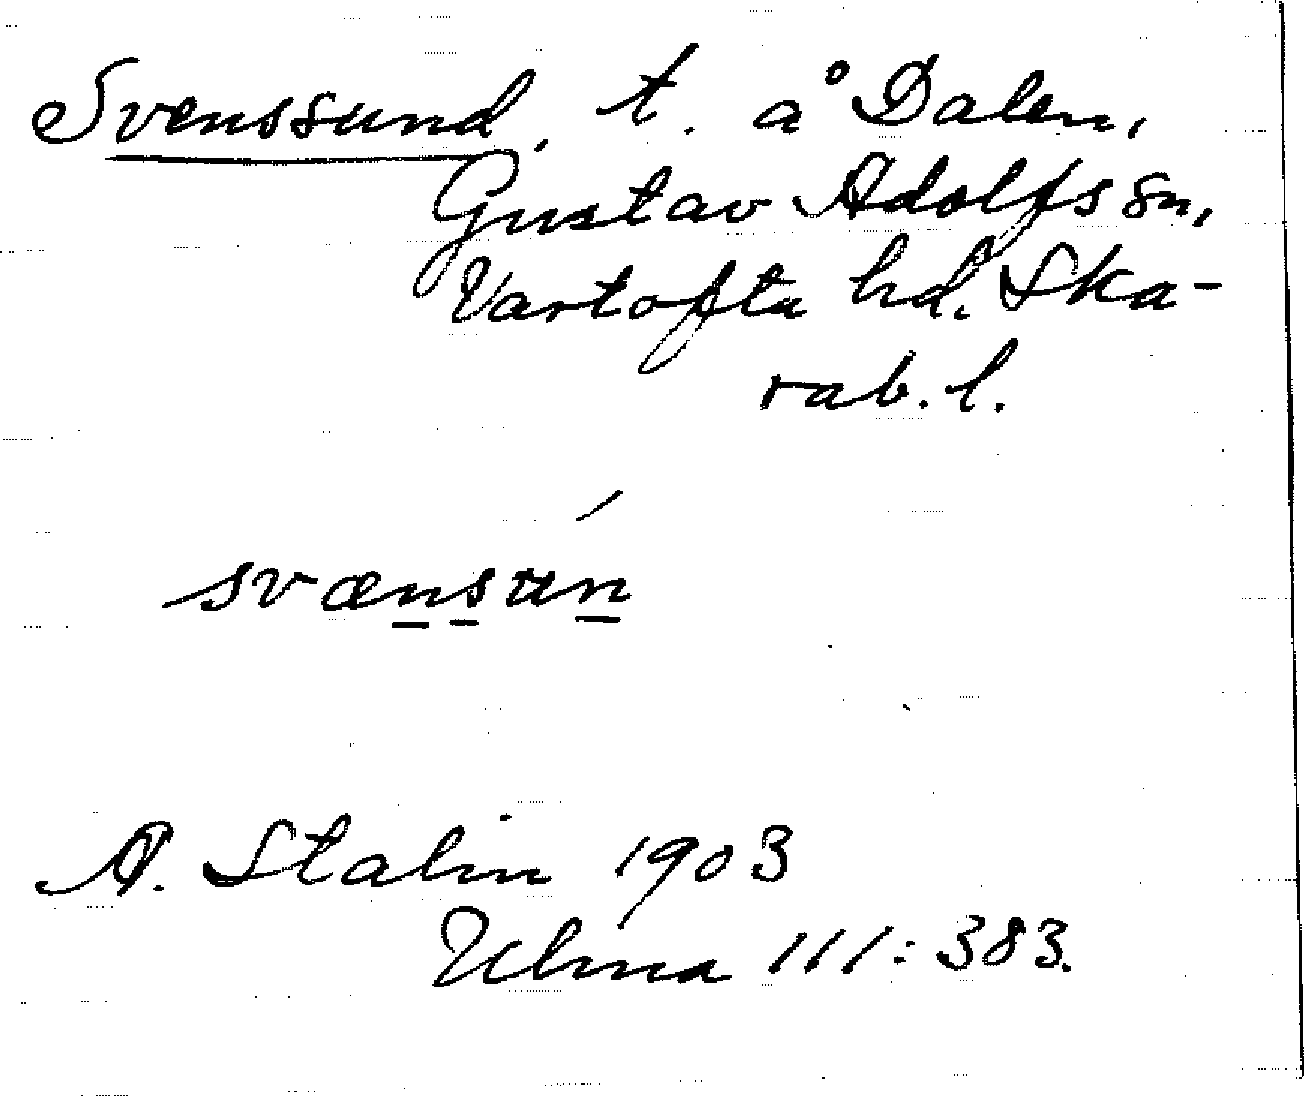 Svenssund, t. å Dalen,
Gustav Adolfs sn,
Vartofta hd. Ska-
rab. l.
svænsun
A. Stalin 1903
Ulma 111:383.